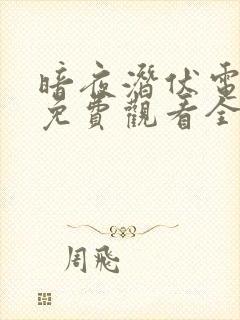 暗夜潛伏電
免費觀看全
周飛